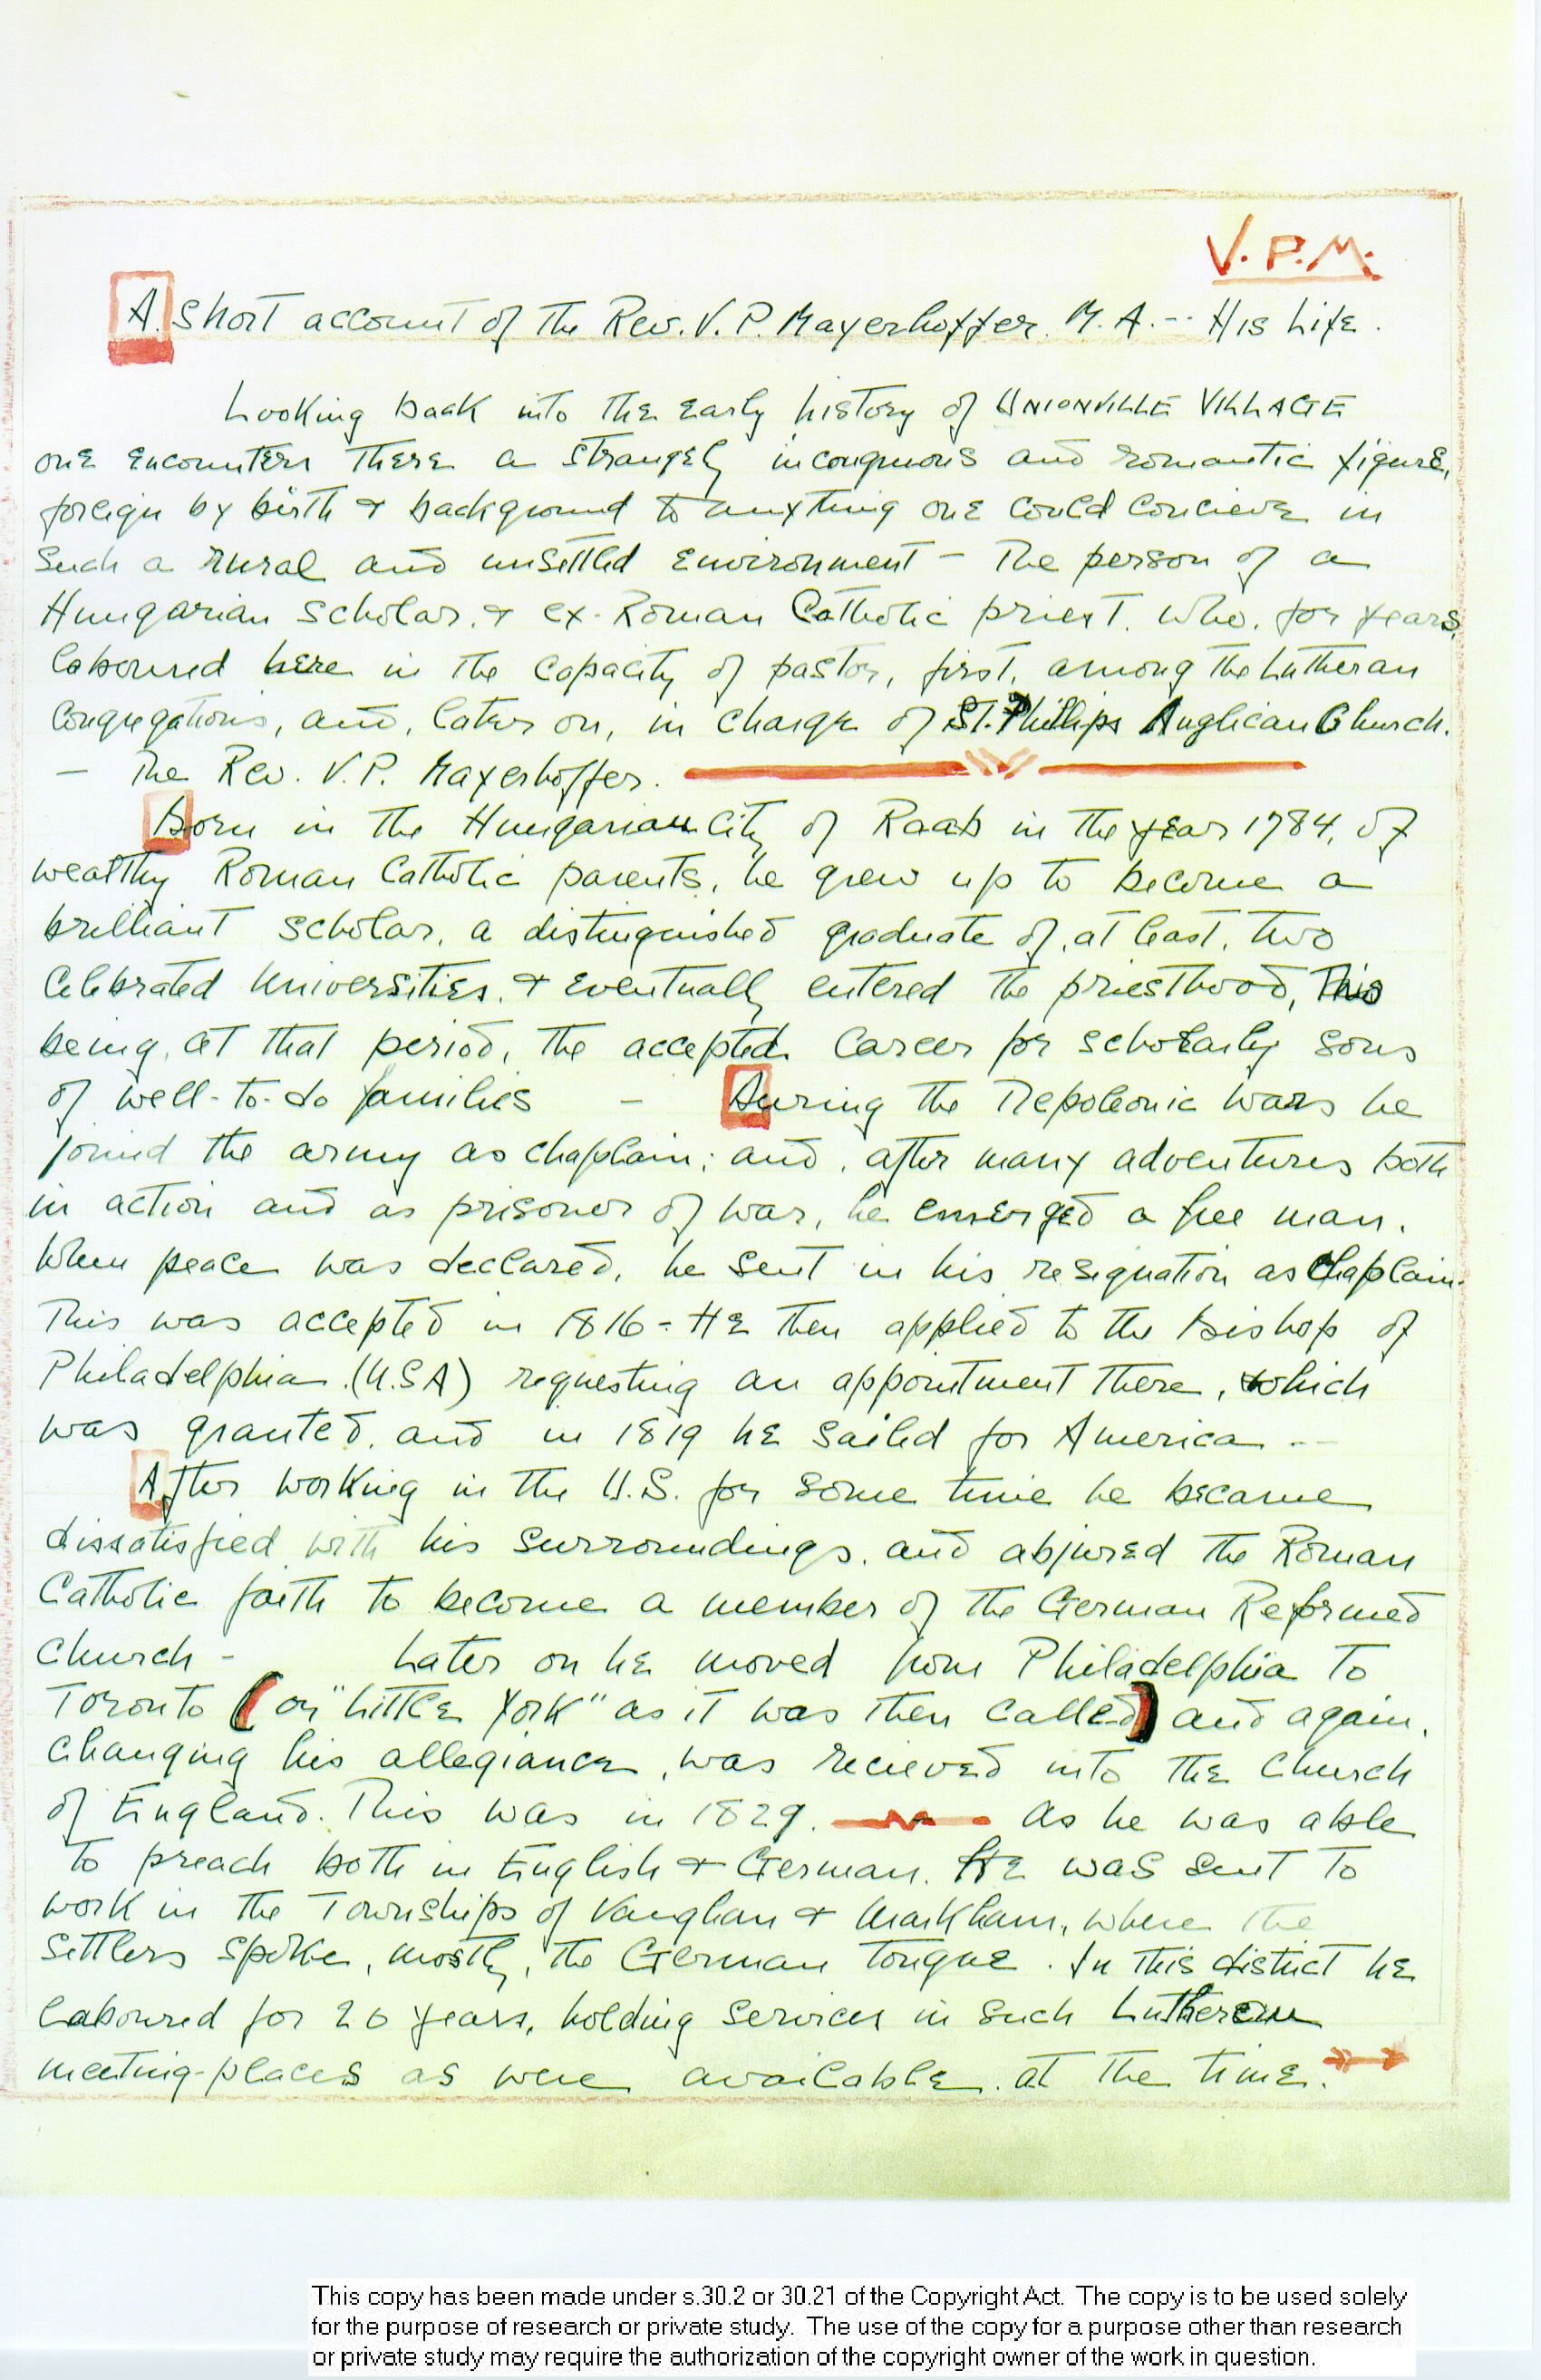 V.P.M.
A. Short account of the Rev. V. P. Mayerhoffer. M. A. -- His Life.
Looking back into the early history of UNIONVILLE VILLAGE
one encounters there a strangely incongruous and romantic figure,
foreign by birth & background to anything one could concieve in
such a rural and unsettled environment - The person of a
Hungarian scholar, & ex-Roman Catholic priest. who, for years,
laboured here in the capacity of pastor, first, among the Lutheran
Congregations, and, later on, in charge of St. Phillips Anglican Church.
- The Rev. V. P. Mayerhoffer.
Born in the Hungarian City of Raab in the year 1784, of
wealthy Roman Catholic parents, he grew up to become a
brilliant scholar, a distinguished graduate of, at least, two
Celebrated Universities, & eventually entered the priesthood, This
being, at that period, the accepted career for scholarly sons
of well-to-do families - During the Nepoleonic wars he
joined the army as chaplain; and, after many adventures both
in action and as prisoner of war, he emerged a free man.
When peace was declared, he sent in his resignation as Chaplain.
This was accepted in 1816 - He then applied to the Bishop of
Philadelphia. (U.S.A) requesting an appointment there, which
was granted, and in 1819 he sailed for America --
After working in the U.S. for some time he became
dissatisfied with his surroundings, and abjured the Roman
Catholic faith to become a member of the German Reformed
Church - Later on he moved from Philadelphia to
Toronto (or "Little York" as it was then called) and again,
changing his allegiance, was recieved into the Church
of England. This was in 1829. As he was able
to preach both in English & German. He was sent to
work in the Townships of Vaughan & Markham, where the
settlers spoke, mostly, the German tongue. In this district he
laboured for 20 years, holding services in such Lutheran
meeting-places as were available. at the time.
This copy has been made under s.30.2 or 30.21 of the Copyright Act. The copy is to be used solely
for the purpose of research or private study. The use of the copy for a purpose other than research
or private study may require the authorization of the copyright owner of the work in question.